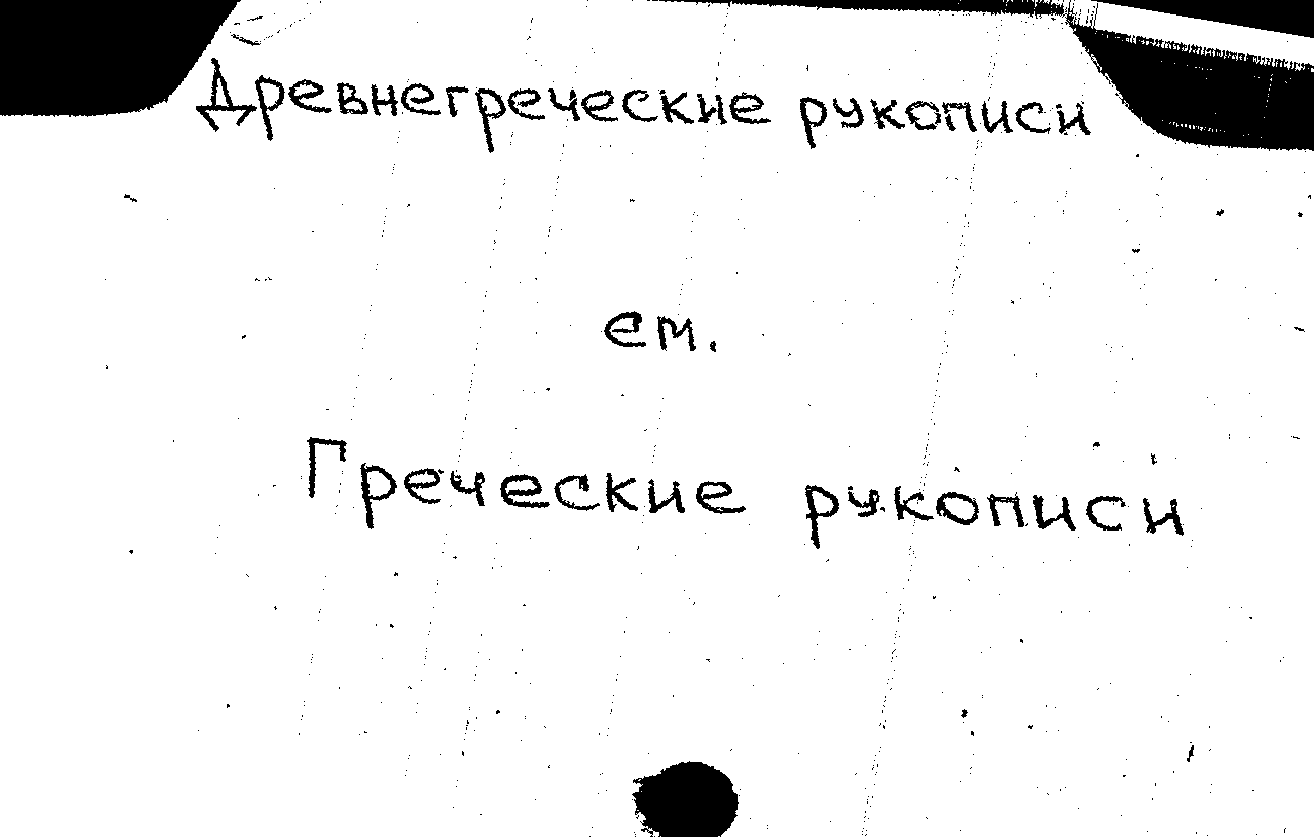 Древнегреческие рукописи
см.
Греческие рукописи